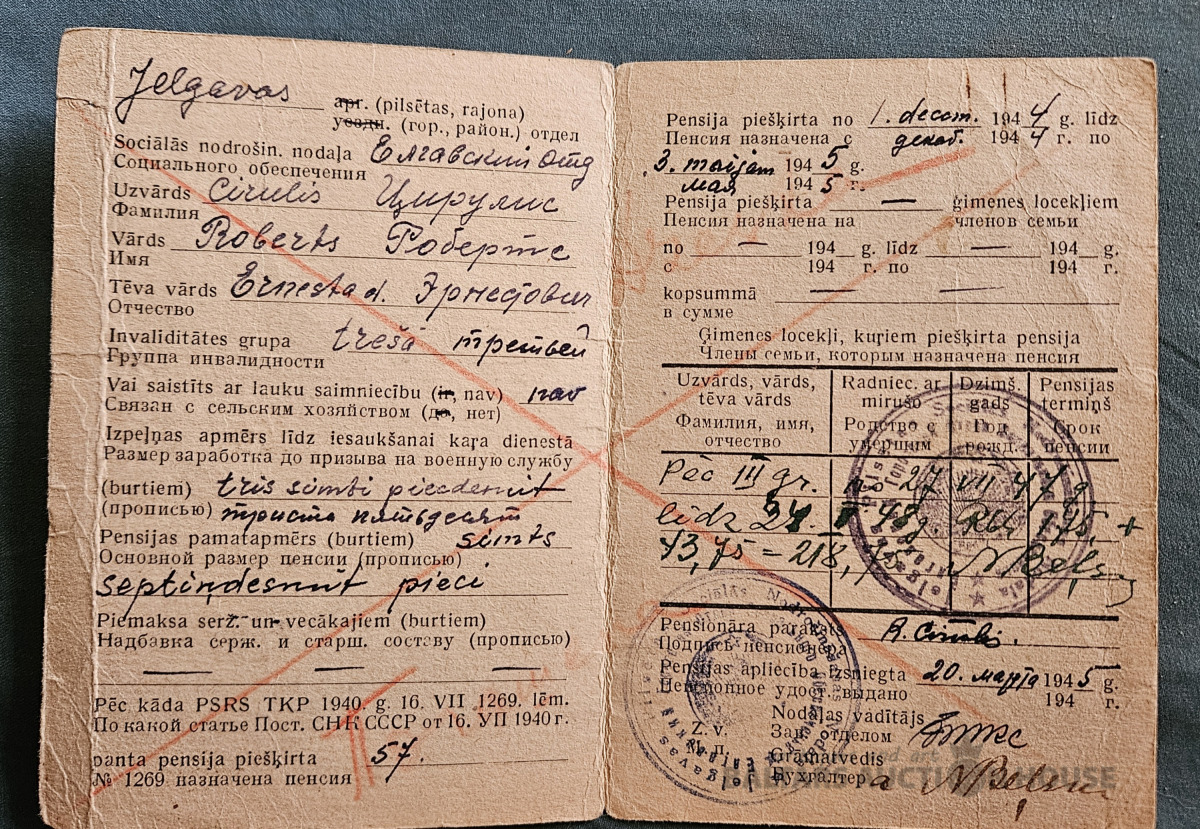 Jelgavas apr. (pilsētas, rajona)
уездн. (гор., район.) отдел
Sociālās nodrošin. nodaļa Елгавский отд
Социального обеспечения
Uzvārds Cirulis Цирулис
Фамилия
Vārds Roberts Робертс
Имя
Tēva vārds Ernesta d. Эрнестович
Отчество
Invaliditātes grupa trešā третьей
Группа инвалидности
Vai saistīts ar lauku saimniecību (ir, nav) nav
Связан с сельским хозяйством (да, нет)
Izpeļņas apmērs līdz iesaukšanai kaŗa dienestā
Размер заработка до призыва на военную службу
(burtiem) trīs simti piecdesmit
(прописью) триста пятьдесят
Pensijas pamatapmērs (burtiem) simts
Основной размер пенсии (прописью)
septiņdesmit pieci
Piemaksa serž. un vecākajiem (burtiem)
Надбавка серж. и старш. составу (прописью)
Pēc kāda PSRS TKP 1940. g. 16. VII 1269. lēm.
По какой статье Пост. СНК СССР от 16. УП 1940 г.
panta pensija piešķirta 57.
№ 1269 назначена пенсия
Pensija piešķirta no 1. decem. 1944 g. līdz
Пенсия назначена с декаб. 1944 г. по
3. maijam 1945 g.
мая 1945 г.
Pensija piešķirta — ģimenes locekļiem
Пенсия назначена на членов семьи
no — 194 g. līdz — 194 g.
с 194 г. по 194 г.
kopsummā — —
в сумме
Ģimenes locekļi, kuŗiem piešķirta pensija
Члены семьи, которым назначена пенсия
Uzvārds, vārds, tēva vārds
Фамилия, имя, отчество
Radniec. ar mirušo
Родство с умершим
Dzimš. gads
Год рожд.
Pensijas termiņš
Срок пенсии
Pēc III gr. no 27 VII
līdz 175, +
43,75 = 218,75
Pensionāra paraksts R. Cirulis.
Подпись пенсионера
Pensijas apliecība izsniegta 20. марта 1945 g.
Пенсионное удост. выдано 194 г.
Nodaļas vadītājs
Зав. отделом
Z. v.
М. п.
Grāmatvedis
Бухгалтер